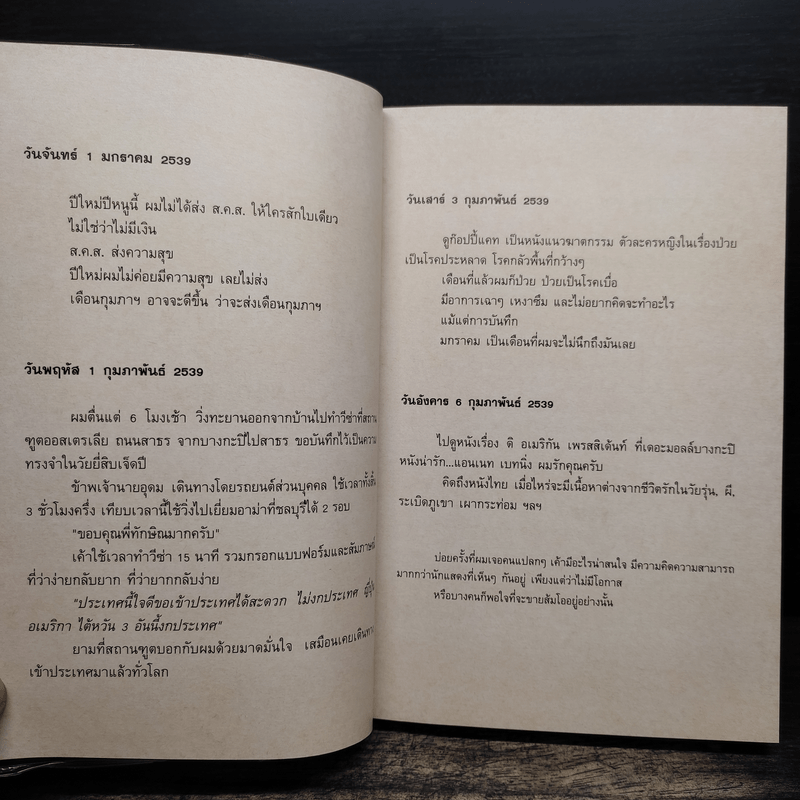 วันจันทร์ 1 มกราคม 2539
ปีใหม่ปีหนูนี้ ผมไม่ได้ส่ง ส.ค.ส. ให้ใครสักใบเดียว
ไม่ใช่ว่าไม่มีเงิน
ส.ค.ส. ส่งความสุข
ปีใหม่ผมไม่ค่อยมีความสุข เลยไม่ส่ง
เดือนกุมภาฯ อาจจะดีขึ้น ว่าจะส่งเดือนกุมภาฯ
วันพฤหัส 1 กุมภาพันธ์ 2539
ผมตื่นแต่ 6 โมงเช้า วิ่งทะยานออกจากบ้านไปทำวีซ่าที่สถาน
ฑูตออสเตรเลีย ถนนสาธร จากบางกะปิไปสาธร ขอบันทึกไว้เป็นความ
ทรงจำในวัยยี่สิบเจ็ดปี
ข้าพเจ้านายอุดม เดินทางโดยรถยนต์ส่วนบุคคล ใช้เวลาทั้งสิ้น
3 ชั่วโมงครึ่ง เทียบเวลานี้ใช้วิ่งไปเยี่ยมอาม่าที่ชลบุรีได้ 2 รอบ
"ขอบคุณพี่ทักษิณมากครับ"
เค้าใช้เวลาทำวีซ่า 15 นาที รวมกรอกแบบฟอร์มและสัมภาษณ์
ที่ว่าง่ายกลับยาก ที่ว่ายากกลับง่าย
"ประเทศนี้ใจดีขอเข้าประเทศได้สะดวก ไม่งกประเทศ ญี่ปุ่น
อเมริกา ไต้หวัน 3 อันนี้งกประเทศ"
ยามที่สถานฑูตบอกกับผมด้วยมาดมั่นใจ เสมือนเคยเดินทาง
เข้าประเทศมาแล้วทั่วโลก
วันเสาร์ 3 กุมภาพันธ์ 2539
ดูก๊อปปี้แคท เป็นหนังแนวฆาตกรรม ตัวละครหญิงในเรื่องป่วย
เป็นโรคประหลาด โรคกลัวพื้นที่กว้างๆ
เดือนที่แล้วผมก็ป่วย ป่วยเป็นโรคเบื่อ
มีอาการเฉาๆ เหงาซึม และไม่อยากคิดจะทำอะไร
แม้แต่การบันทึก
มกราคม เป็นเดือนที่ผมจะไม่นึกถึงมันเลย
วันอังคาร 6 กุมภาพันธ์ 2539
ไปดูหนังเรื่อง ดิ อเมริกัน เพรสสิเด้นท์ ที่เดอะมอลล์บางกะปิ
หนังน่ารัก...แอนเนท เบทนิ่ง ผมรักคุณครับ
คิดถึงหนังไทย เมื่อไหร่จะมีเนื้อหาต่างจากชีวิตรักในวัยรุ่น, ผี,
ระเบิดภูเขา เผากระท่อม ฯลฯ
บ่อยครั้งที่ผมเจอคนแปลกๆ เค้ามีอะไรน่าสนใจ มีความคิดความสามารถ
มากกว่านักแสดงที่เห็นๆ กันอยู่ เพียงแต่ว่าไม่มีโอกาส
หรือบางคนก็พอใจที่จะขายส้มโออยู่อย่างนั้น